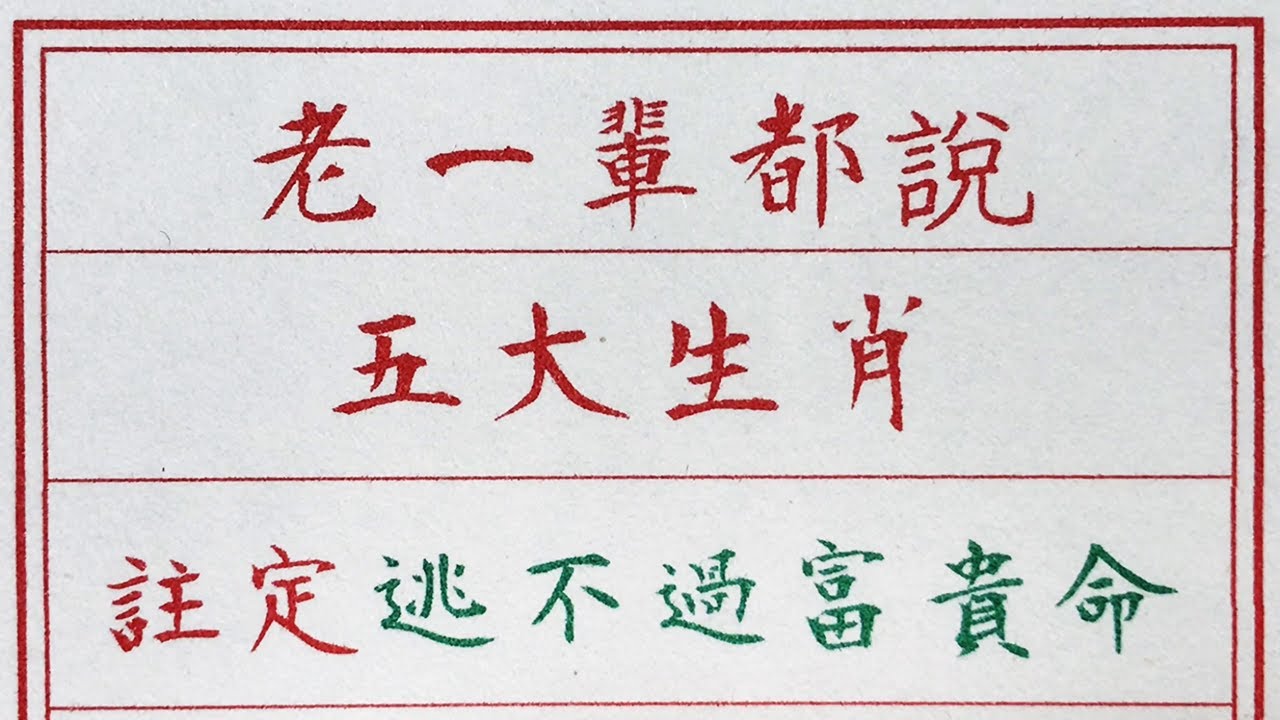 老一輩都說
五大生肖
註定逃不過富貴命